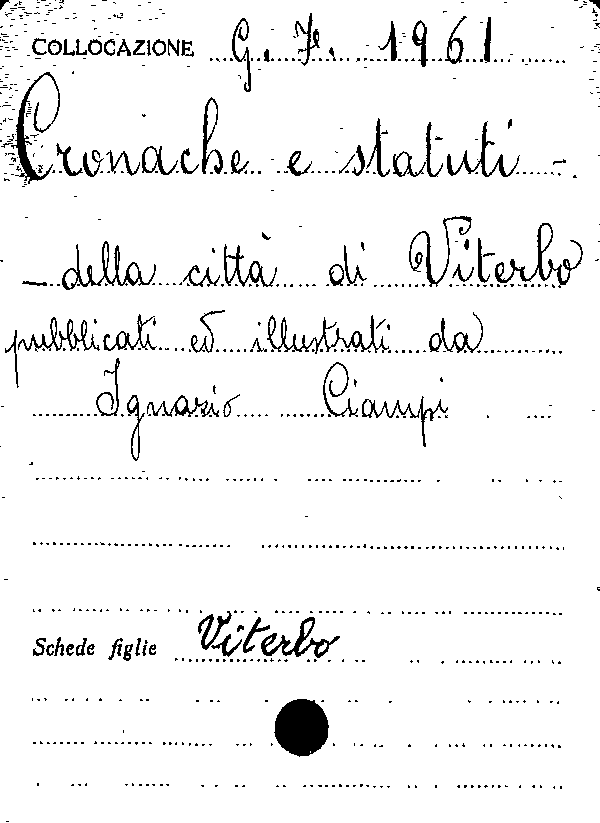 COLLOCAZIONE G. F. 1961
Cronache e statuti -
- della città di Viterbo
pubblicati ed illustrati da
Ignazio Ciampi
Schede figlie Viterbo